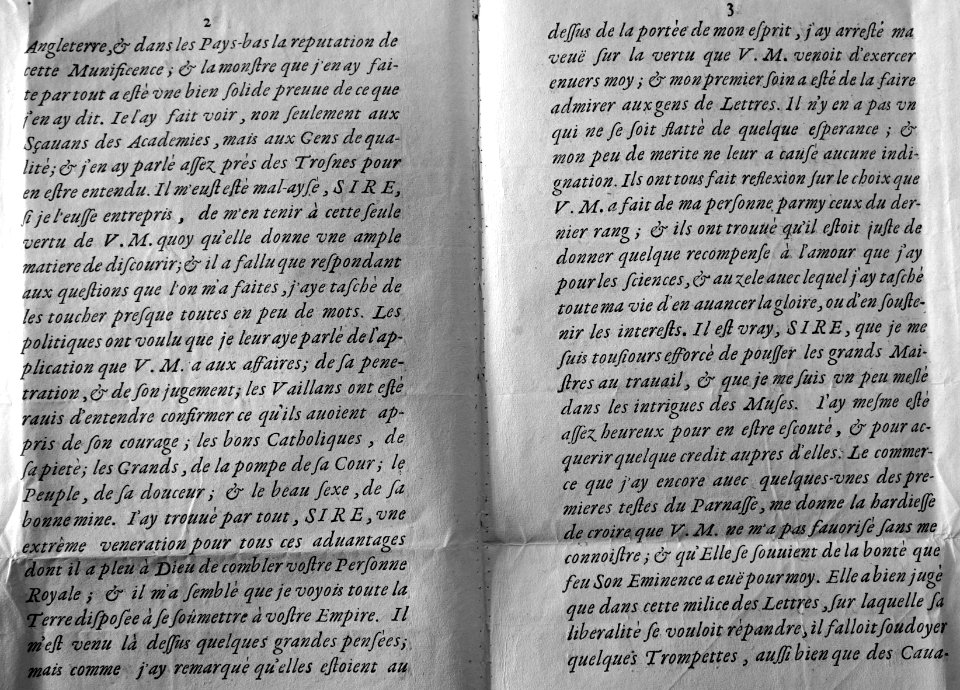 2
Angleterre, & dans les Pays-bas la reputation de
cette Munificence ; & la monſtre que j'en ay fai-
te par tout a eſté vne bien ſolide preuue de ce que
j'en ay dit. Ie l'ay fait voir, non ſeulement aux
Sçauans des Academies, mais aux Gens de qua-
lité; & j'en ay parlé aſſez prés des Troſnes pour
en eſtre entendu. Il m'euſt eſté mal-ayſé, SIRE,
ſi je l'euſſe entrepris, de m'en tenir à cette ſeule
vertu de V. M. quoy qu'elle donne vne ample
matiere de diſcourir; & il a fallu que reſpondant
aux queſtions que l'on m'a faites, j'aye taſché de
les toucher preſque toutes en peu de mots. Les
politiques ont voulu que je leur aye parlé de l'ap-
plication que V. M. a aux affaires; de ſa pene-
tration, & de ſon jugement; les Vaillans ont eſté
rauis d'entendre confirmer ce qu'ils auoient ap-
pris de ſon courage ; les bons Catholiques, de
ſa pieté; les Grands, de la pompe de ſa Cour; le
Peuple, de ſa douceur ; & le beau ſexe, de ſa
bonne mine. I'ay trouué par tout, SIRE, vne
extrême veneration pour tous ces aduantages
dont il a pleu à Dieu de combler voſtre Perſonne
Royale ; & il m'a ſemblé que je voyois toute la
Terre diſpoſée à ſe ſoûmettre à voſtre Empire. Il
m'eſt venu là deſſus quelques grandes penſées;
mais comme j'ay remarqué qu'elles eſtoient au
3
deſſus de la portée de mon eſprit, j'ay arreſté ma
veuë ſur la vertu que V. M. venoit d'exercer
enuers moy ; & mon premier ſoin a eſté de la faire
admirer aux gens de Lettres. Il n'y en a pas vn
qui ne ſe ſoit flatté de quelque eſperance ; &
mon peu de merite ne leur a cauſe aucune indi-
gnation. Ils ont tous fait reflexion ſur le choix que
V. M. a fait de ma perſonne parmy ceux du der-
nier rang ; & ils ont trouué qu'il eſtoit juſte de
donner quelque recompenſe à l'amour que j'ay
pour les ſciences, & au zele auec lequel j'ay taſché
toute ma vie d'en auancer la gloire, ou d'en ſouſte-
nir les intereſts. Il eſt vray, SIRE, que je me
ſuis touſiours efforcé de pouſſer les grands Mai-
ſtres au trauail, & que je me ſuis vn peu meſlé
dans les intrigues des Muſes. I'ay meſme eſté
aſſez heureux pour en eſtre eſcouté, & pour ac-
querir quelque credit aupres d'elles. Le commer-
ce que j'ay encore auec quelques-vnes des pre-
mieres teſtes du Parnaſſe, me donne la hardieſſe
de croire que V. M. ne m'a pas fauoriſé ſans me
connoiſtre ; & qu'Elle ſe ſouuient de la bonté que
feu Son Eminence a euë pour moy. Elle a bien jugé
que dans cette milice des Lettres, ſur laquelle ſa
liberalité ſe vouloit répandre, il falloit ſoudoyer
quelques Trompettes, auſſi bien que des Caua-